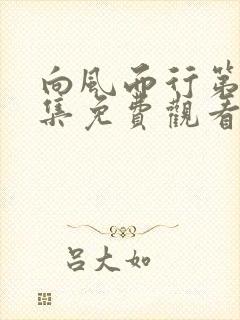 向風而行第
集免費觀看
呂大如